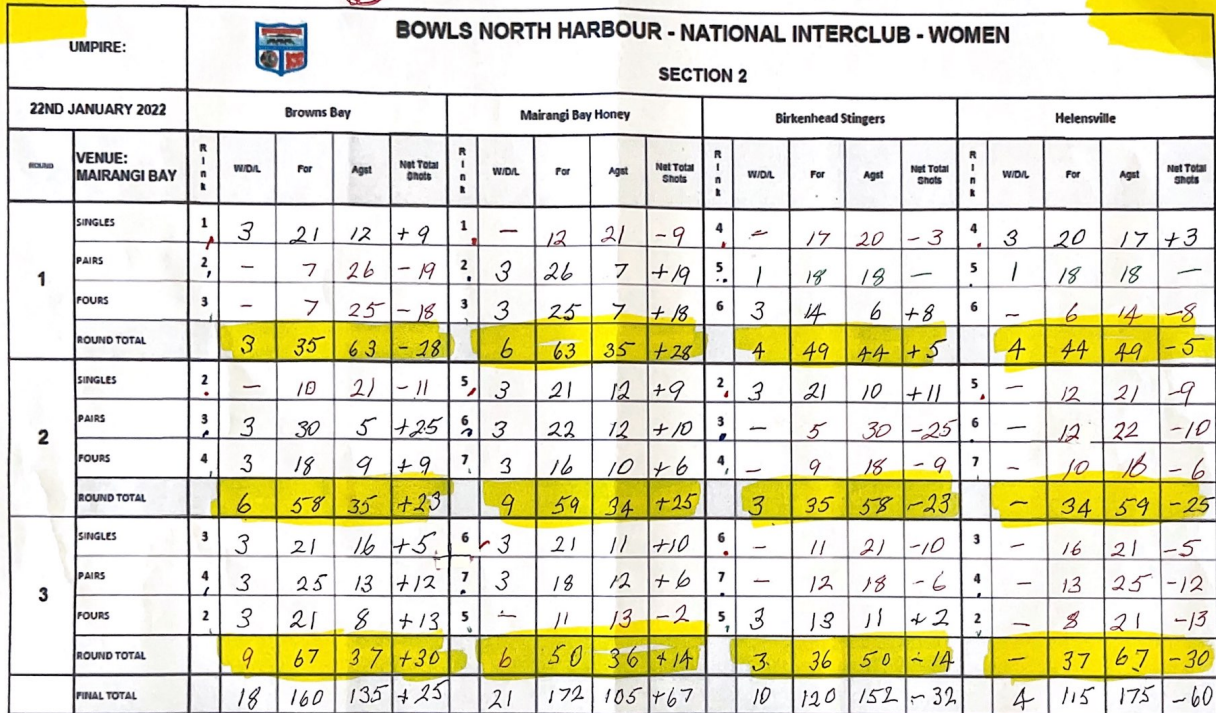 BOWLS NORTH HARBOUR - NATIONAL INTERCLUB - WOMEN
UMPIRE:
SECTION 2
22ND JANUARY 2022 Browns Bay Mairangi Bay Honey Birkenhead Stingers Helensville
ROUND VENUE: MAIRANGI BAY Rink W/D/L For Agst Net Total Shots Rink W/D/L For Agst Net Total Shots Rink W/D/L For Agst Net Total Shots Rink W/D/L For Agst Net Total Shots
1
SINGLES 1 3 21 12 +9 1 - 12 21 -9 4 - 17 20 -3 4 3 20 17 +3
PAIRS 2 - 7 26 -19 2 3 26 7 +19 5 1 18 18 - 5 1 18 18 -
FOURS 3 - 7 25 -18 3 3 25 7 +18 6 3 14 6 +8 6 - 6 14 -8
ROUND TOTAL 3 35 63 -28 6 63 35 +28 4 49 44 +5 4 44 49 -5
2
SINGLES 2 - 10 21 -11 5 3 21 12 +9 2 3 21 10 +11 5 - 12 21 -9
PAIRS 3 3 30 5 +25 6 3 22 12 +10 3 - 5 30 -25 6 - 12 22 -10
FOURS 4 3 18 9 +9 7 3 16 10 +6 4 - 9 18 -9 7 - 10 16 -6
ROUND TOTAL 6 58 35 +23 9 59 34 +25 3 35 58 -23 - 34 59 -25
3
SINGLES 3 3 21 16 +5 6 3 21 11 +10 6 - 11 21 -10 3 - 16 21 -5
PAIRS 4 3 25 13 +12 7 3 18 12 +6 7 - 12 18 -6 4 - 13 25 -12
FOURS 2 3 21 8 +13 5 - 11 13 -2 5 3 13 11 +2 2 - 8 21 -13
ROUND TOTAL 9 67 37 +30 6 50 36 +14 3 36 50 -14 - 37 67 -30
FINAL TOTAL 18 160 135 +25 21 172 105 +67 10 120 152 -32 4 115 175 -60